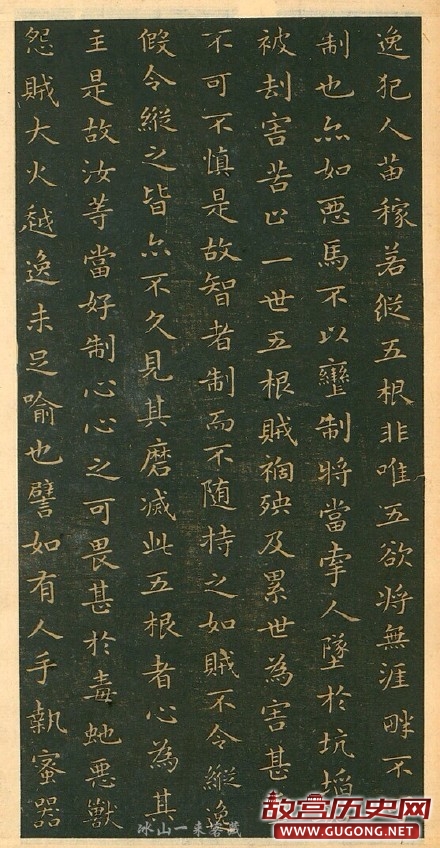 逸犯人苗稼若縱五根非唯五欲將無涯畔不
制也亦如悪馬不以轡制將當牽人墜於坑埳
被刦害苦止一世五根賊禍殃及累世為害甚
不可不慎是故智者制而不随持之如賊不令縱逸
假令縱之皆亦不久見其磨滅此五根者心為其
主是故汝等當好制心心之可畏甚於毒虵悪獸
怨賊大火越逸未足喻也譬如有人手執蜜器
冰山一来客藏
故宫历史网
WWW.GUGONG.NET